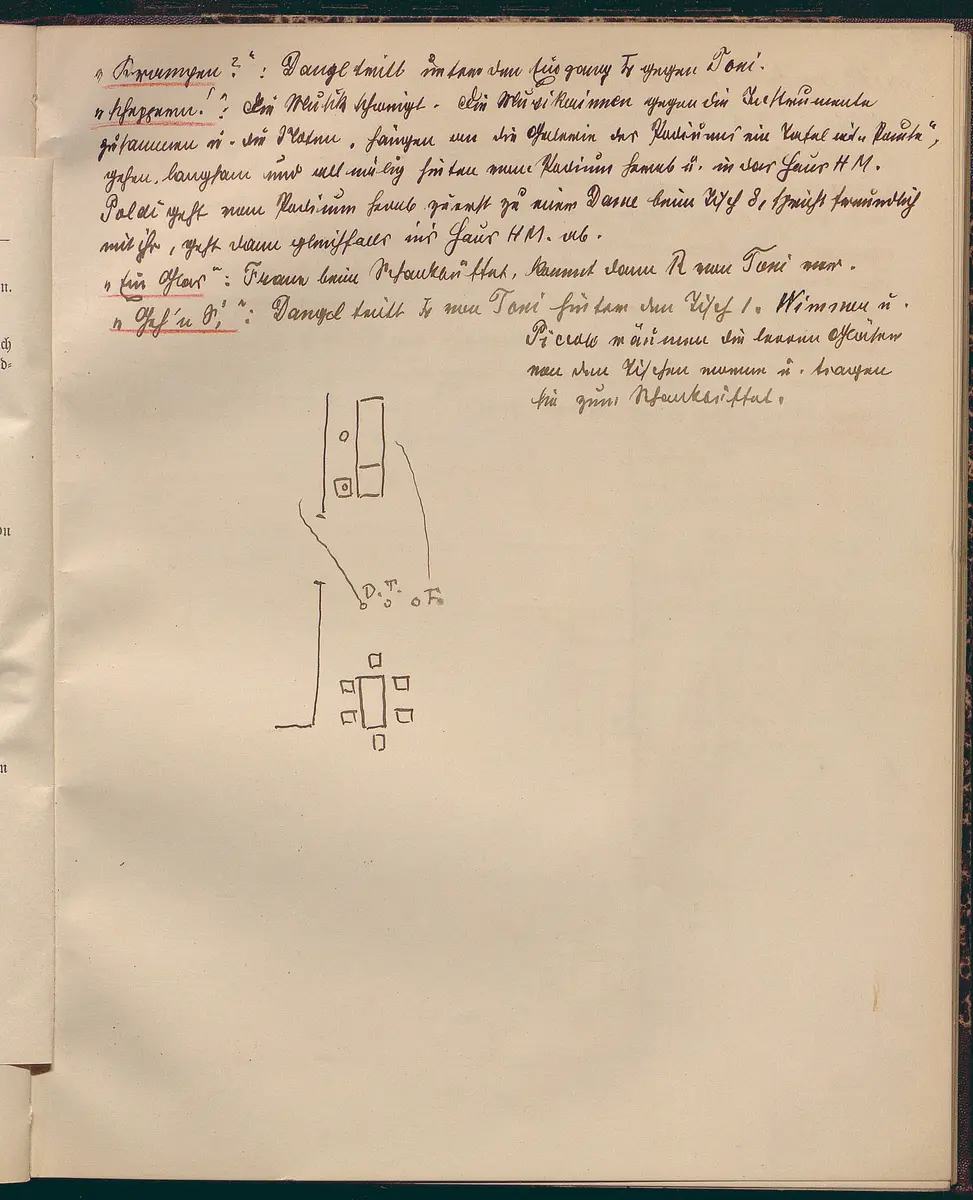 „Krampen?“: Dangl tritt unter den Eingang L gegen Toni.
„scheppern!“: Die Musik schweigt. Die Musikerinnen legen die Instrumente
zusammen u. die Noten, hängen an die Galerie des Podiums ein Tafel mit „Pause“,
gehen langsam und allmälig hinten vom Podium herab u. in das Haus HM.
Poldi geht vom Podium herab zuerst zu einer Dame beim Tisch 8, spricht freundlich
mit ihr, geht dann gleichfalls in's Haus HM. ab.
„Ein Glas“: Franz beim Schankbüffet, kommt dann R von Toni vor.
„Geh'n S',“: Dangl tritt L von Toni hinter den Tisch 1. Wimmer u.
Piccolo räumen die leeren Gläser
von den Tischen vorne u. tragen
sie zum Schankbüffet.
D. T. F.
n.
ch
d=
on
n